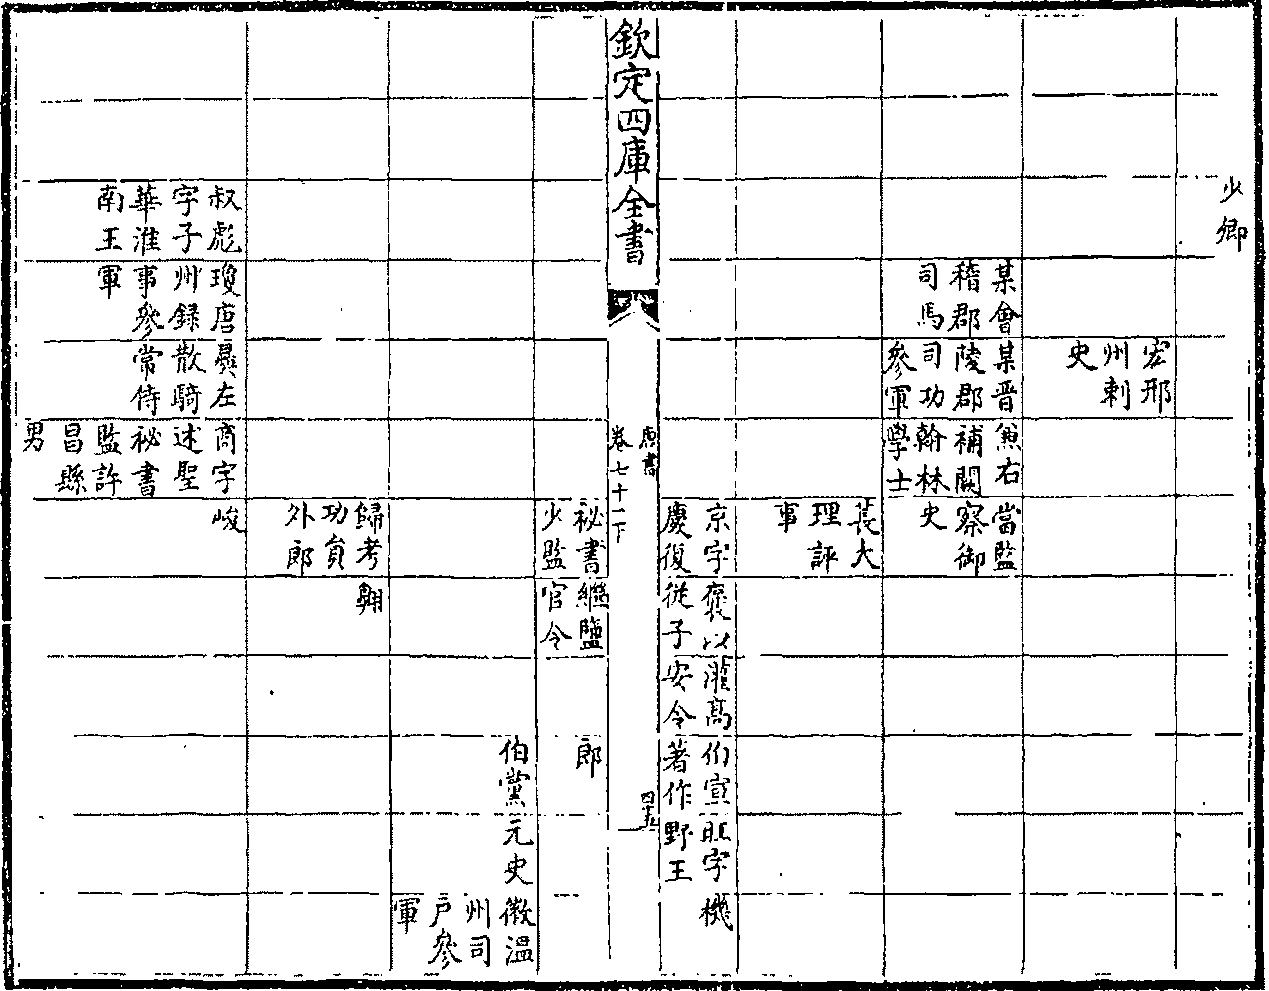 少卿
宏邢
州刺
史
某會
稽郡
司馬
某晋
陵郡
司功
參軍
兼右
補闕
翰林
學士
當監
察御
史
萇大
理評
事
京字
慶復
褒以
從子
灌高
安令
伯宣
著作
旺字
野王
機
欽定四庫全書
唐書
卷七十一下
四十五
祕書
少監
繼鹽
官令
郎
伯黨
元史
徽溫
州司
户參
軍
歸考
功員
外郎
翱
叔彪
字子
華淮
南王
瓊唐
州録
事參
軍
彛左
散騎
常侍
商字
述聖
祕書
監許
昌縣
男
峻